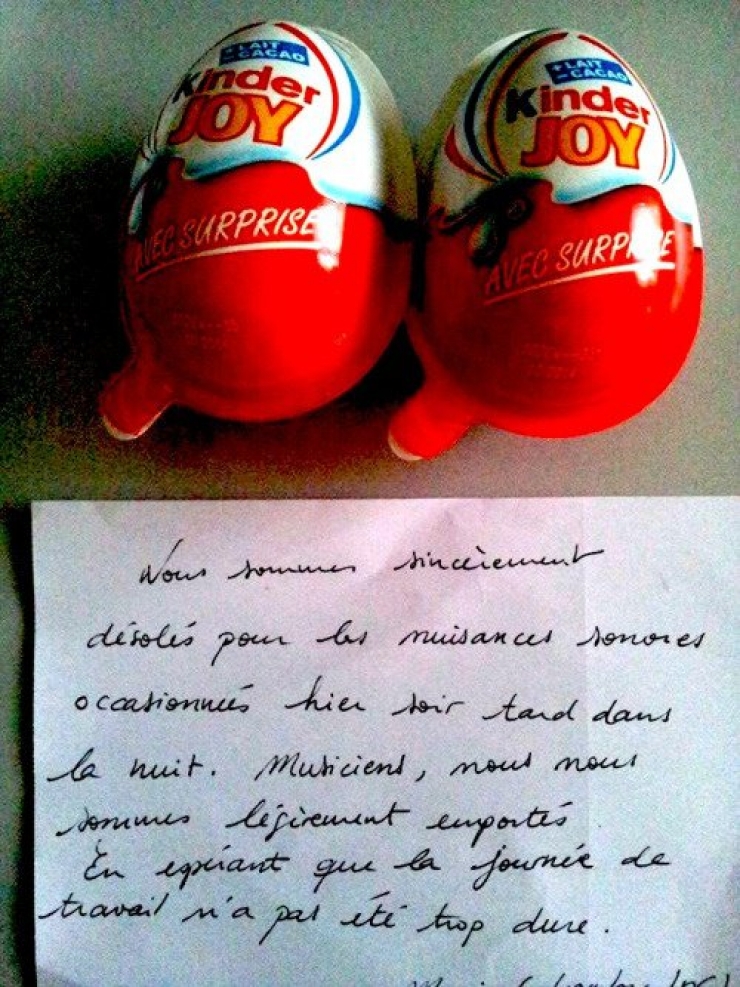 + LAIT
- CACAO
Kinder
JOY
AVEC SURPRISE
+ LAIT
- CACAO
Kinder
JOY
AVEC SURPRISE
Nous sommes sincèrement
désolés pour les nuisances sonores
occasionnées hier soir tard dans
la nuit. Musiciens, nous nous
sommes légèrement emportés
En espérant que la journée de
travail n'a pas été trop dure.